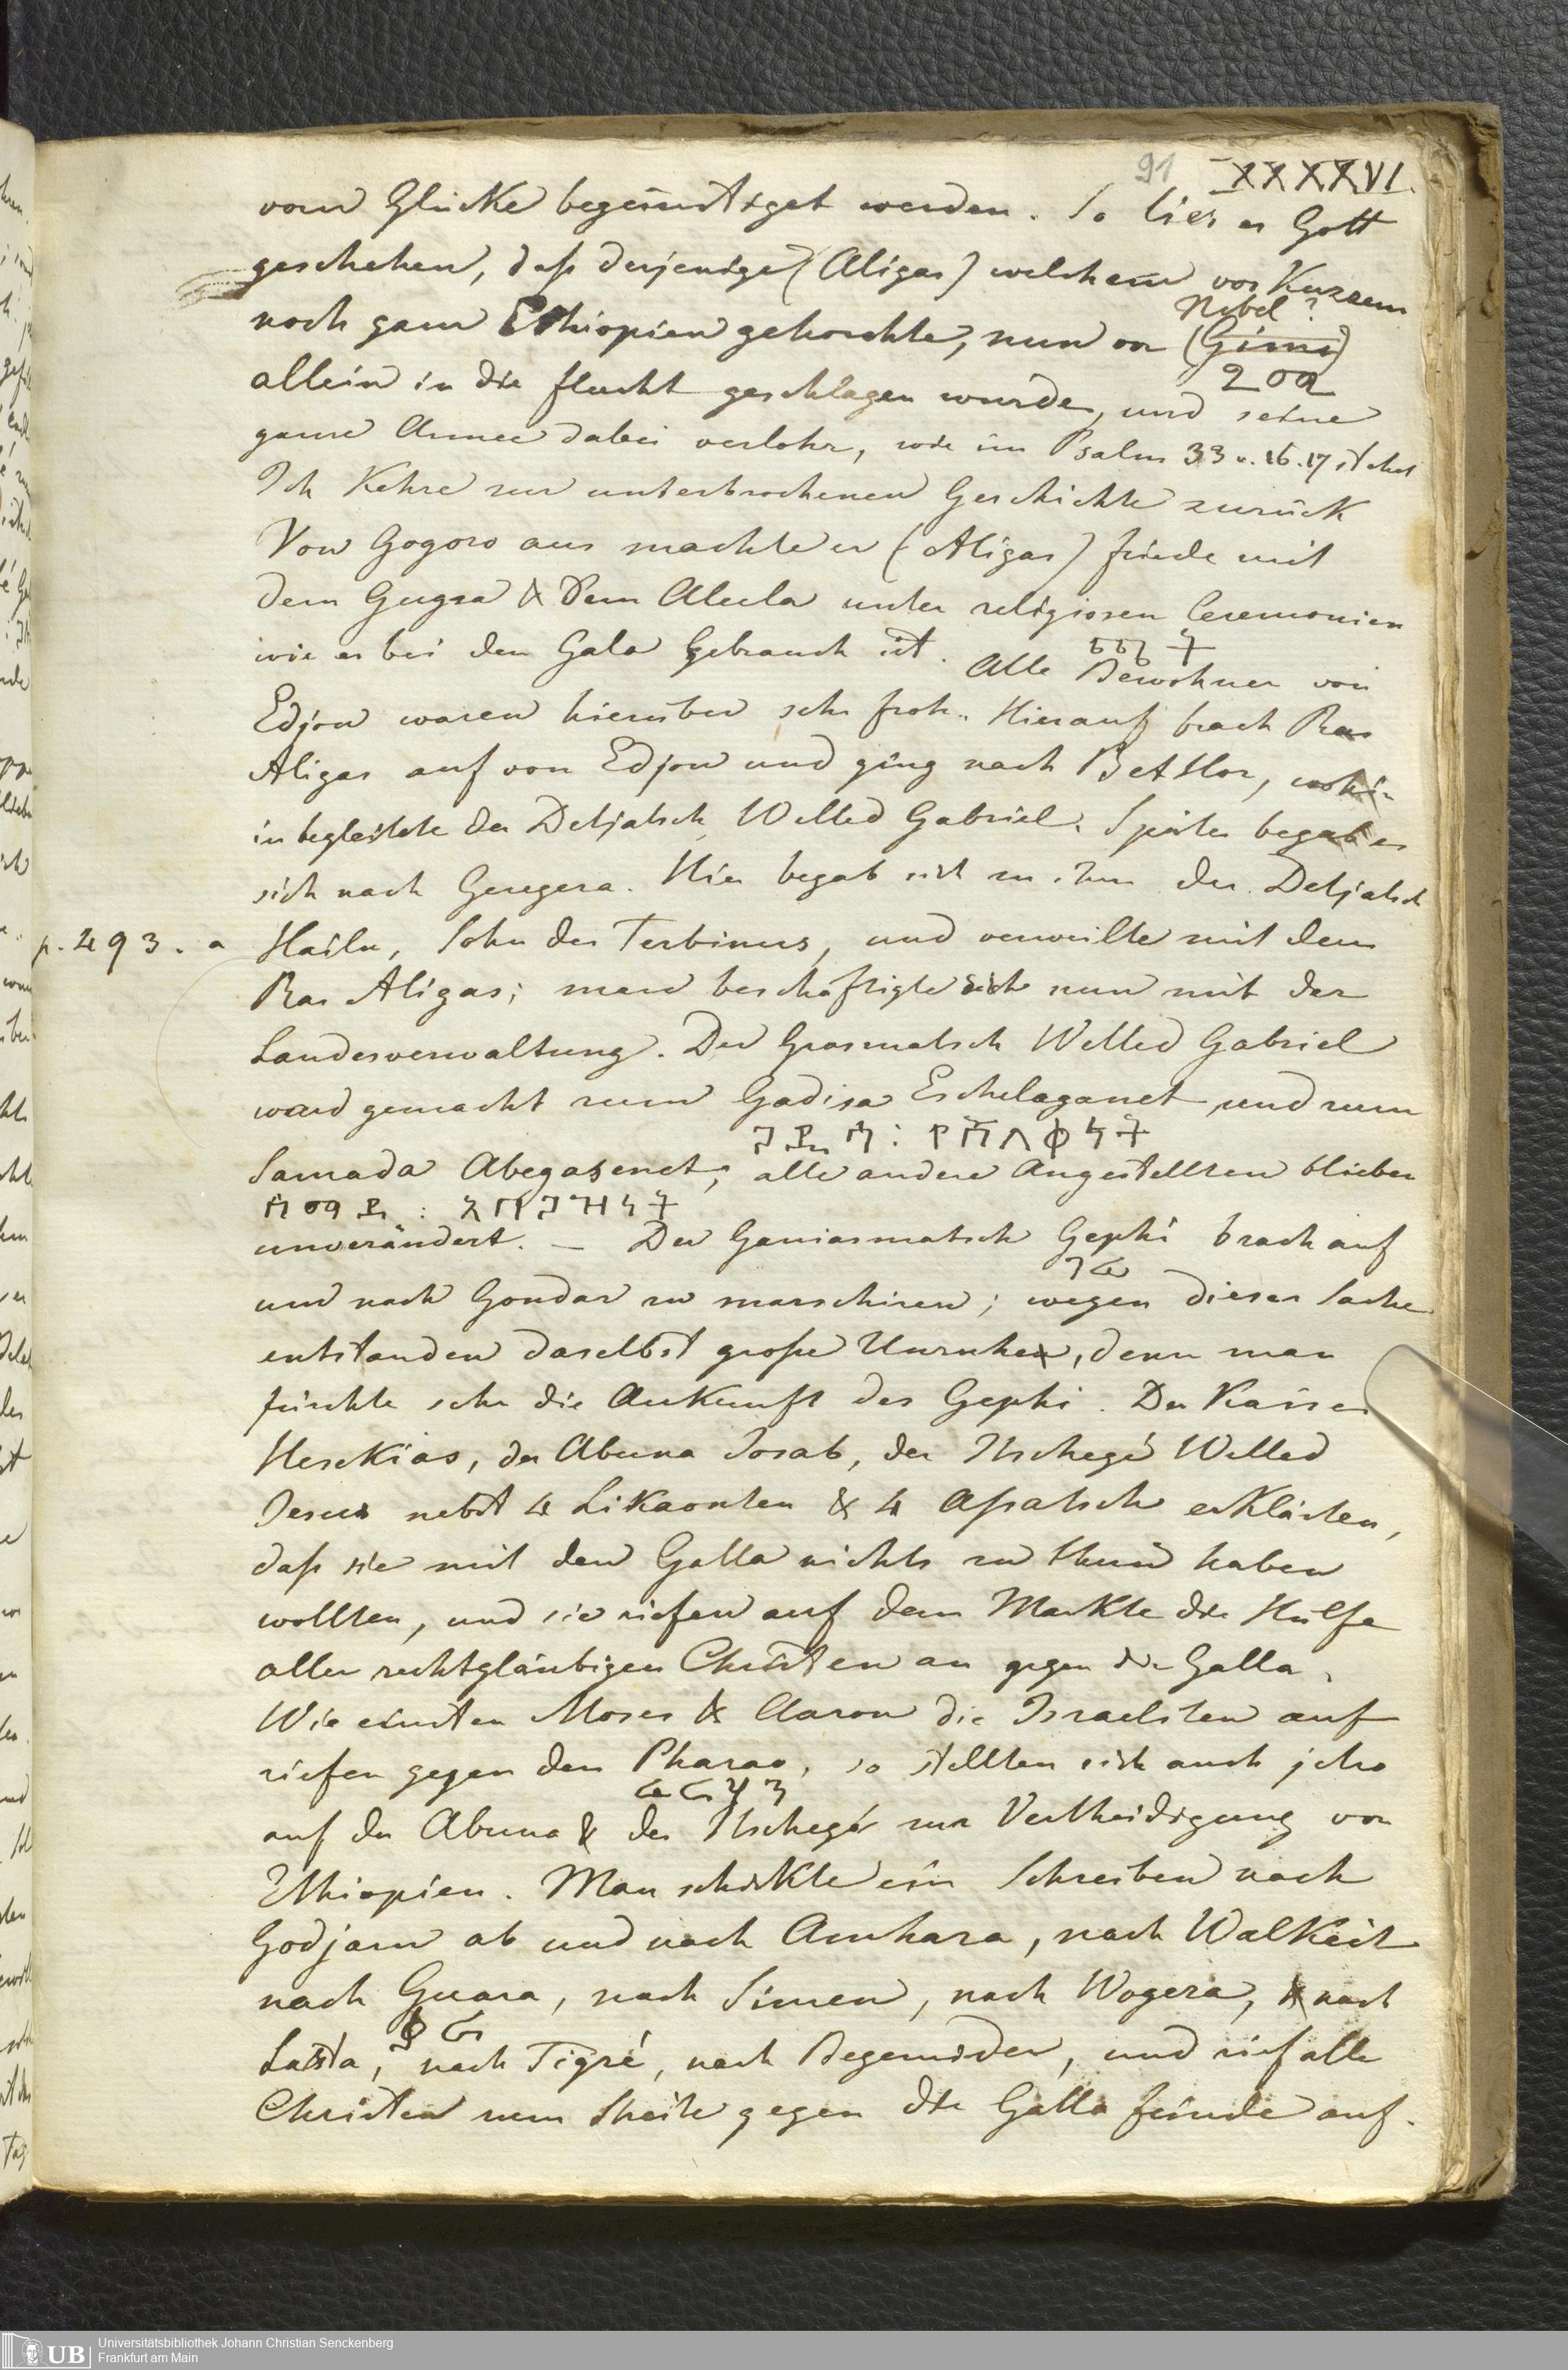 91 XXXXVI.
vom Glücke begünstiget werden. So lies es Gott
geschehen, daß derjenige (Aligas) welchem vor Kurzem
Nebel?
noch ganz Ethiopien gehorchte, nun von (Gimi)
allein in die flucht geschlagen wurde, und seine
ganze Armee dabei verlohr, wie im Psalm 33 v. 16.17 stehet
Ich Kehre zur unterbrochenen Geschichte zurück
Von Gogoro aus machte er (Aligas) friede mit
dem Gugsa & dem Alula unter religiosen Ceremonien
wie es bei den Gala Gebrauch ist. Alle Bewohner von
Edjou waren hierüber sehr froh. Hierauf brach Ras
Aligas auf von Edjou und ging nach Bet Hor, wohin
in begleitete der Detjatsch Welled Gabriel. Später begab er
sich nach Geregera. Hier begab sich zu ihm der Detjatsch
p. 493. a Hailu, Sohn des Terbinus, und verweilte mit dem
Ras Aligas; man beschäftigte sich nun mit der
Landesverwaltung. Der Grasmatsch Welled Gabriel
ward gemacht zum Gadisa Eschelaganet und zum
ጋዲሳ : የሻለቅነት
Samada Abegasenet; alle andere Angestellten blieben
ሳማዳ : አበጋዝነት
unverändert. — Der Ganiasmatsch Gephi brach auf
um nach Gondar zu marschiren; wegen dieser Sache
entstanden daselbst große Unruhen, denn man
fürchte sehr die Ankunft des Gephi. Der Kaiser
Heskias, der Abuna Josab, der Itschegé Welled
Jesus nebst 4 Likaonten & 4 Asatsch erklärten,
daß sie mit den Galla nichts zu thun haben
wollten, und sie riefen auf dem Markte die Hülfe
aller rechtgläubigen Christen an gegen die Galla.
Wie einsten Moses & Aaron die Israeliten auf
riefen gegen den Pharao, so stellten sich auch jetzo
auf der Abuna & der Itschegé zur Vertheidigung von
Ethiopien. Man schickte ein Schreiben nach
Godjam ab und nach Amhara, nach Walkeit
nach Guara, nach Simen, nach Wogera, nach
Lasta, nach Tigré, nach Begemider, und rief alle
Christen zum Streite gegen die Galla feinde auf.
UB Universitätsbibliothek Johann Christian Senckenberg
Frankfurt am Main